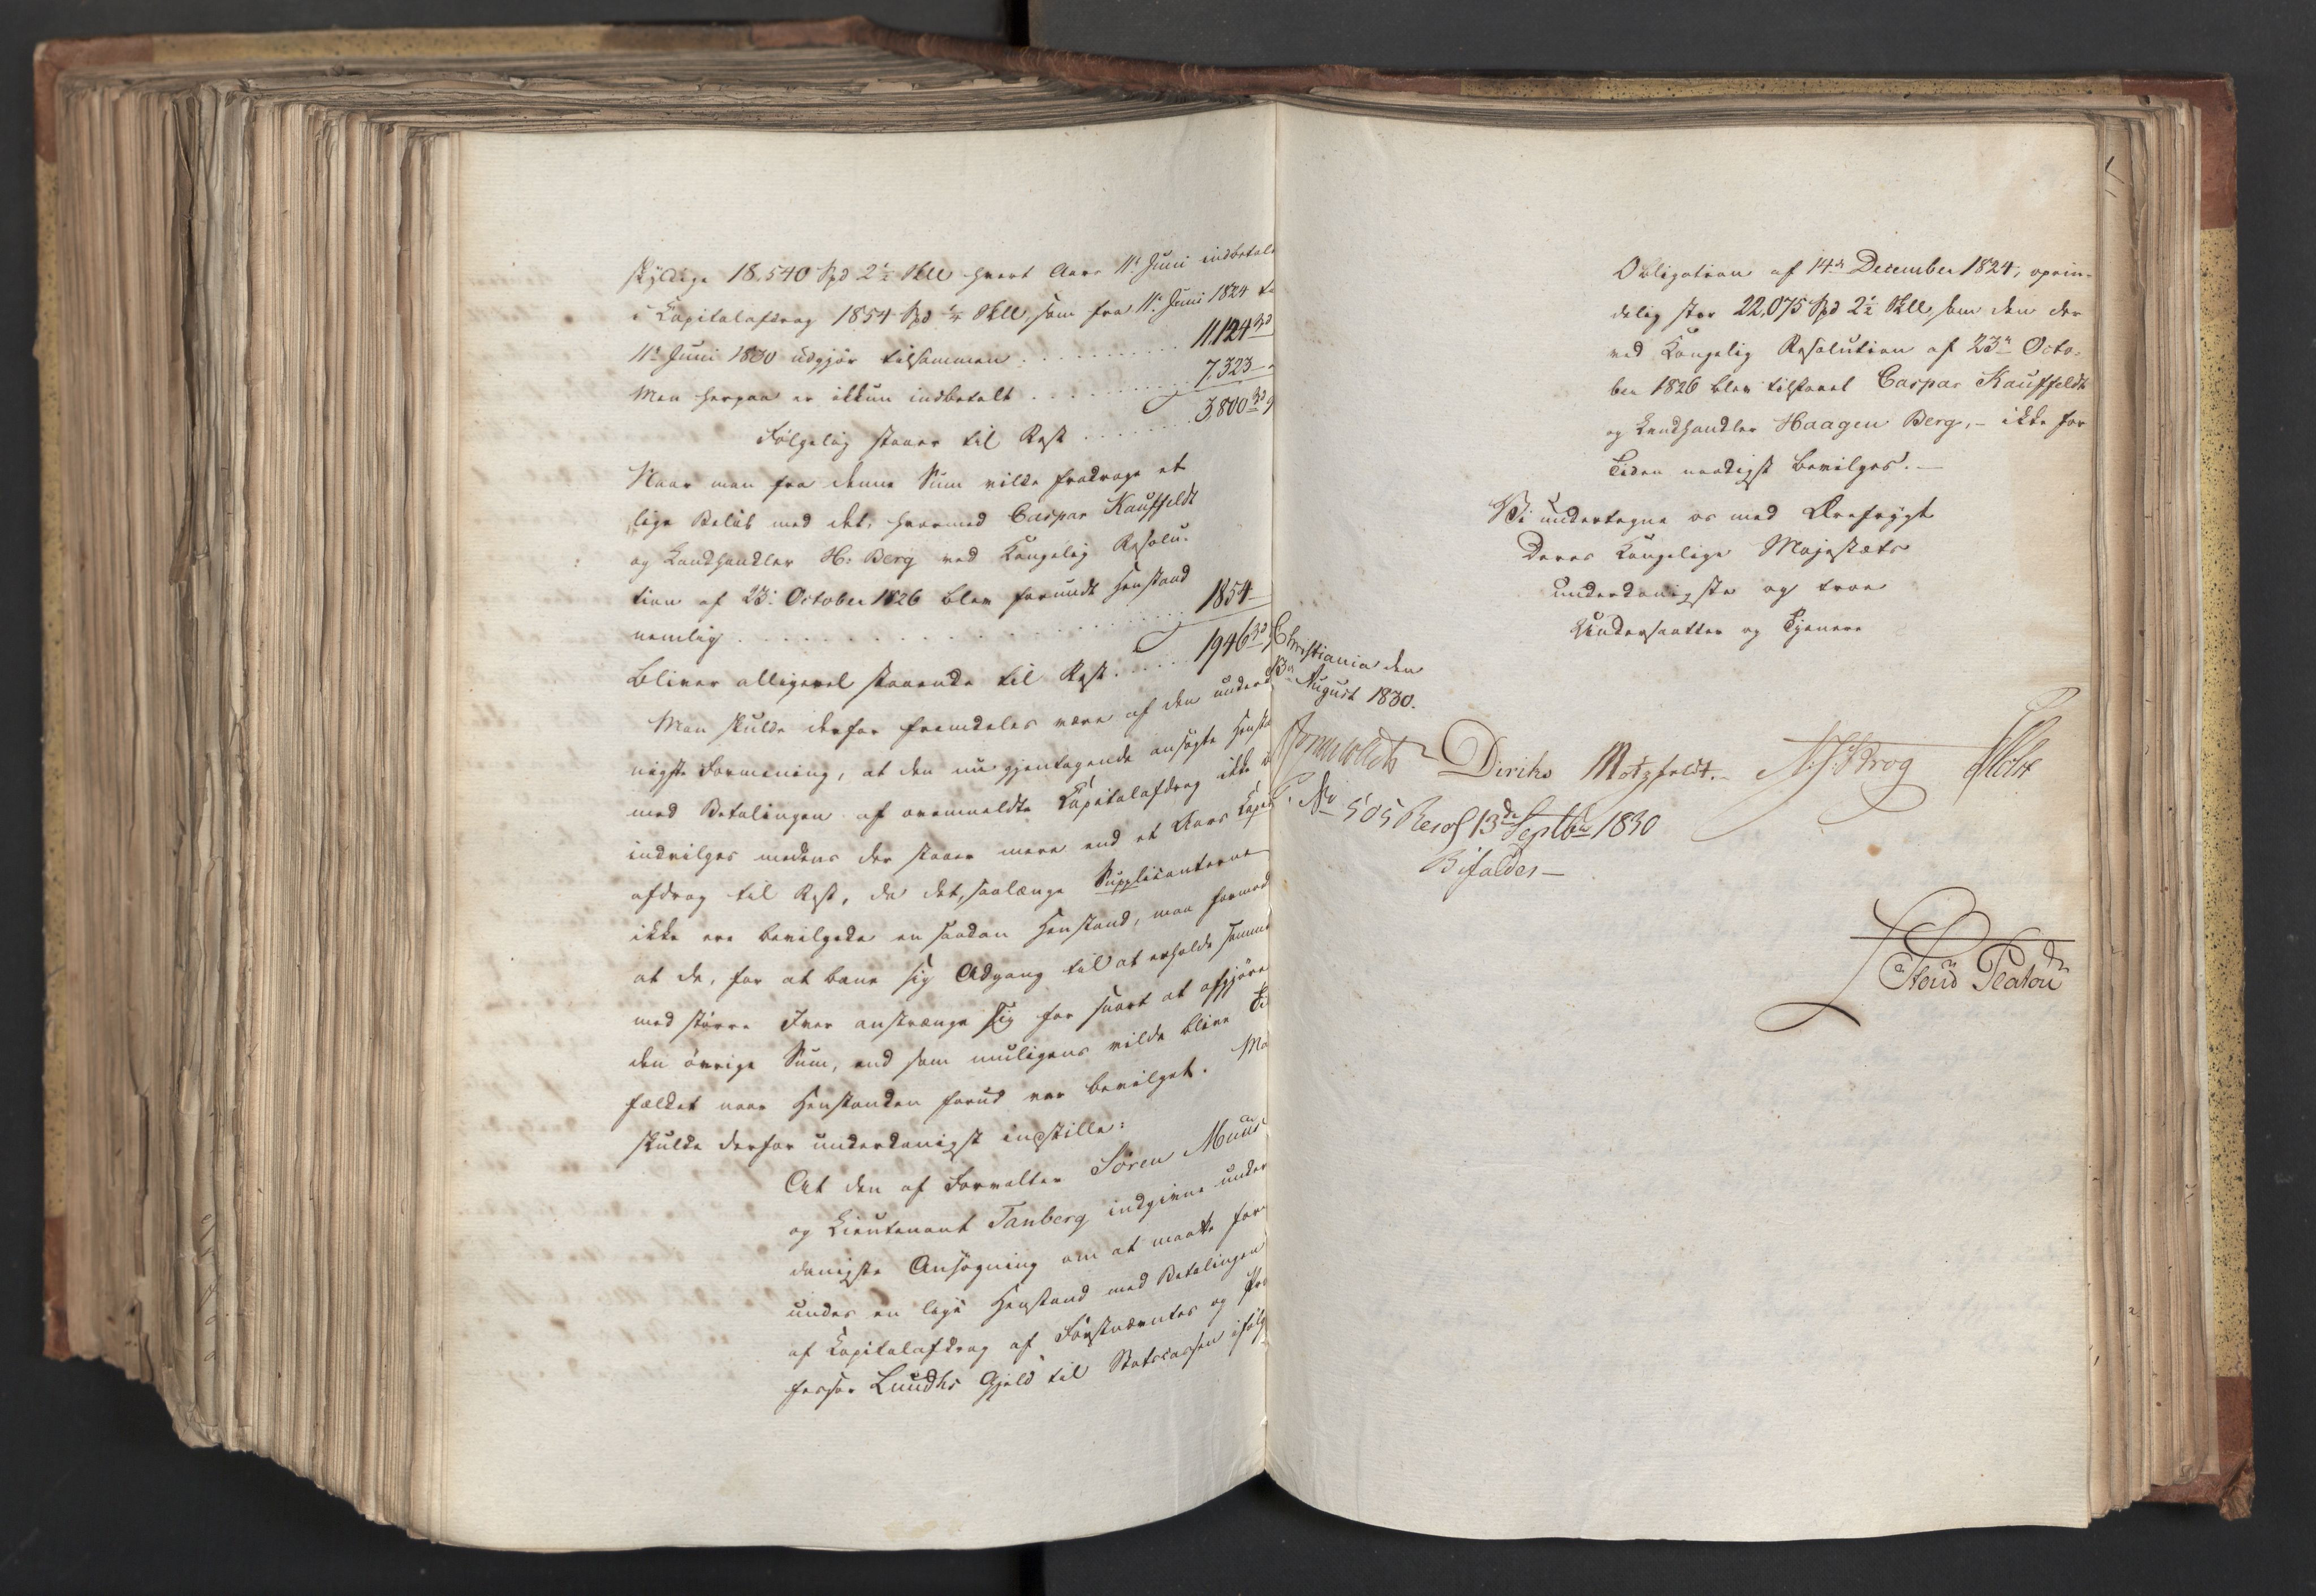 skyldige 18,540 Spd 2½ Skll hvert Aars 11 Juni indbetale
i Kapitalafdrag 1854 Spd Skll, som fra 11 Juni 1824 t
11 Juni 1830 udgjør tilsammen . . . . . 11.124
Men herpaa er ikkun indbetalt . . . . . 7.323
Følgelig staaer til Rest . . . . . 3800
Naar man fra denne Sum vilde fradrage et
lige Beløb med det, hvormed Caspar Kauffeldt
og Landhandler H: Berg ved Kongelig Resolu-
tion af 23: October 1826 blev forundt Henstand
nemlig . . . . . 1854
bliver alligevel staaende til Rest . . . . . 1946
Man skulde derfor fremdeles være af den underd
nigste Formening, at den nu gjentagende ansøgte Hensta
med Betalingen af ovenmeldte Kapitalafdrag ikke
indvilges medens der staaer mere end et Aars Kapit
afdrag til Rest, da det, saalænge Supplicanterne
ikke ere bevilgede en saadan Henstand, maa formod
at de, for at bane sig Adgang til at erholde samme
med større Iver anstrænge sig for snart at afgjøre
den øvrige Sum, end som muligens vilde blive Til
fældet naar Henstanden forud var bevilget. Ma
skulde derfor underdanigst indstille:
At den af Forvalter Sören Muus
og Lieutenant Tanberg indgivne under
danigste Ansøgning om at maatte for
undes en lige Henstand med Betalingen
af Kapitalafdrag af Førstnævntes og Pro
fessor Lundhs Gjeld til Statscassen ifølg
Obligation af 14de December 1824, oprin-
delig stor 22,075 Spd 2½ Skll, som den der
ved Kongelig Resolution af 23de Octo-
ber 1826 blev tilstaaet Caspar Kauffeldt
og Landhandler Haagen Berg, - ikke for
Tiden naadigst bevilges. —
Vi undertegne os med Ærefrygt
Deres Kongelige Majestæts
underdanigste og troe
Undersaatter og Tjenere
Christiania den
13 August 1830.
Diriks Motzfeldt. Krog Holst
No 505 Resol 13de Septbr 1830
Bifaldes —
Platou